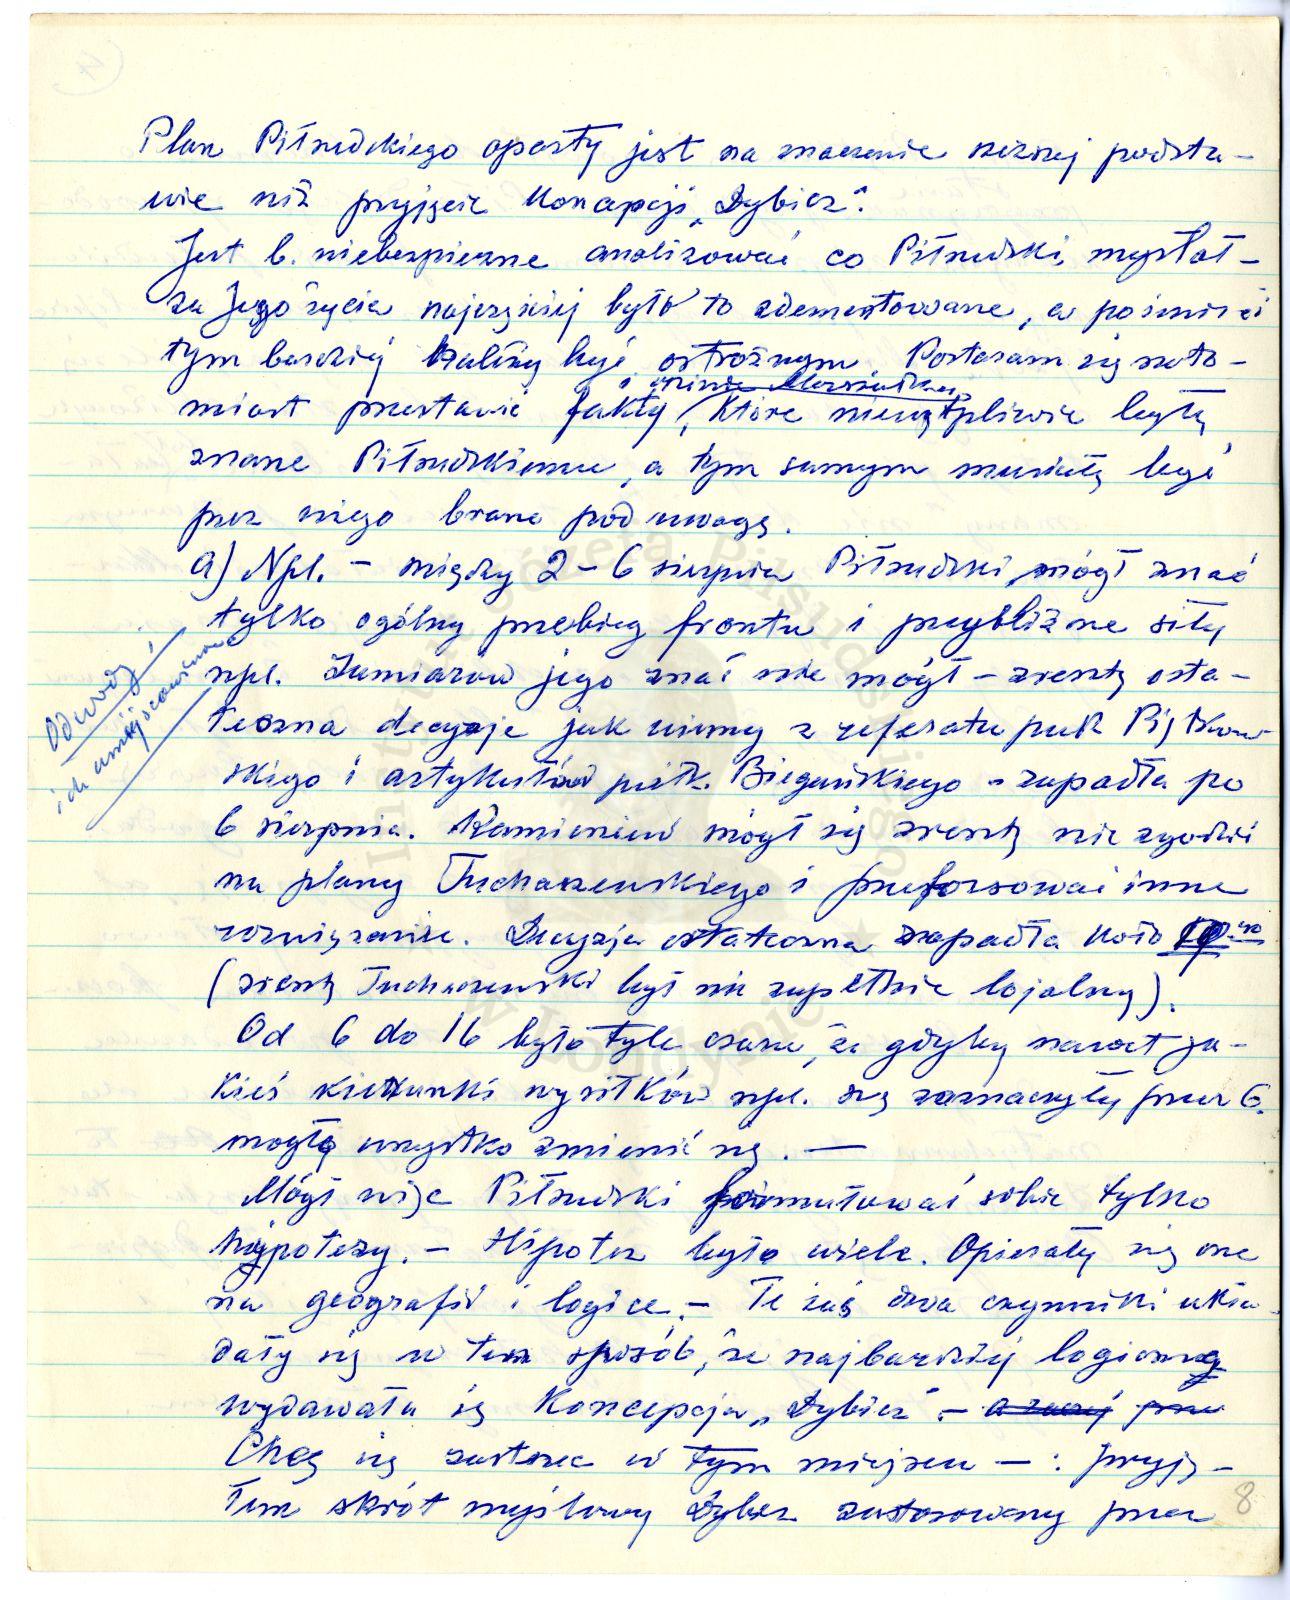 Plan Piłsudskiego oparty jest na znacznie szerszej podsta-
wie niż przyjęcie koncepcji „Dybicz".
Jest b. niebezpieczne analizować co Piłsudski myślał -
za Jego życia najczęściej było to zdementowane, a po śmierci
tym bardziej należy być ostrożnym. Postaram się nato-
miast przestawić fakty, które niewątpliwie były
znane Piłsudskiemu, a tym samym musiały być
przez niego brane pod uwagę.
a) Npl. - między 2-6 sierpnia Piłsudski mógł znać
tylko ogólny przebieg frontu i przybliżone siły
npl. Zamiarów jego znać nie mógł - zresztą osta-
teczna decyzje jak wiemy z referatu płk Piątkow-
skiego i artykułów płk. Biegańskiego - zapadła po
6 sierpnia. Kamieniew mógł się zresztą nie zgodzić
na plany Tuchaczewskiego i przeforsować inne
rozwiązanie. Decyzja ostateczna zapadła koło 10.
(zresztą Tuchaczewski był nie zupełnie lojalny).
Od 6 do 16 było tyle czasu, że gdyby nawet ja-
kieś kierunki wysiłków npl. się zaznaczyły przed 6.
mogło wszystko zmienić się. —
Mógł więc Piłsudski formułować sobie tylko
hypotezy. - Hipotez było wiele. Opierały się one
na geografii i logice. - Te zaś dwa czynniki ukła-
dały się w ten sposób, że najbardziej logiczną
wydawała się koncepcja „Dybicz". -
Chcę się zastrzec w tym miejscu - : przyją-
łem skrót myślowy Dybicz zastosowany przez
Odwody i
ich umiejscowienie
8
Instytut Józefa Piłsudskiego
w Londynie